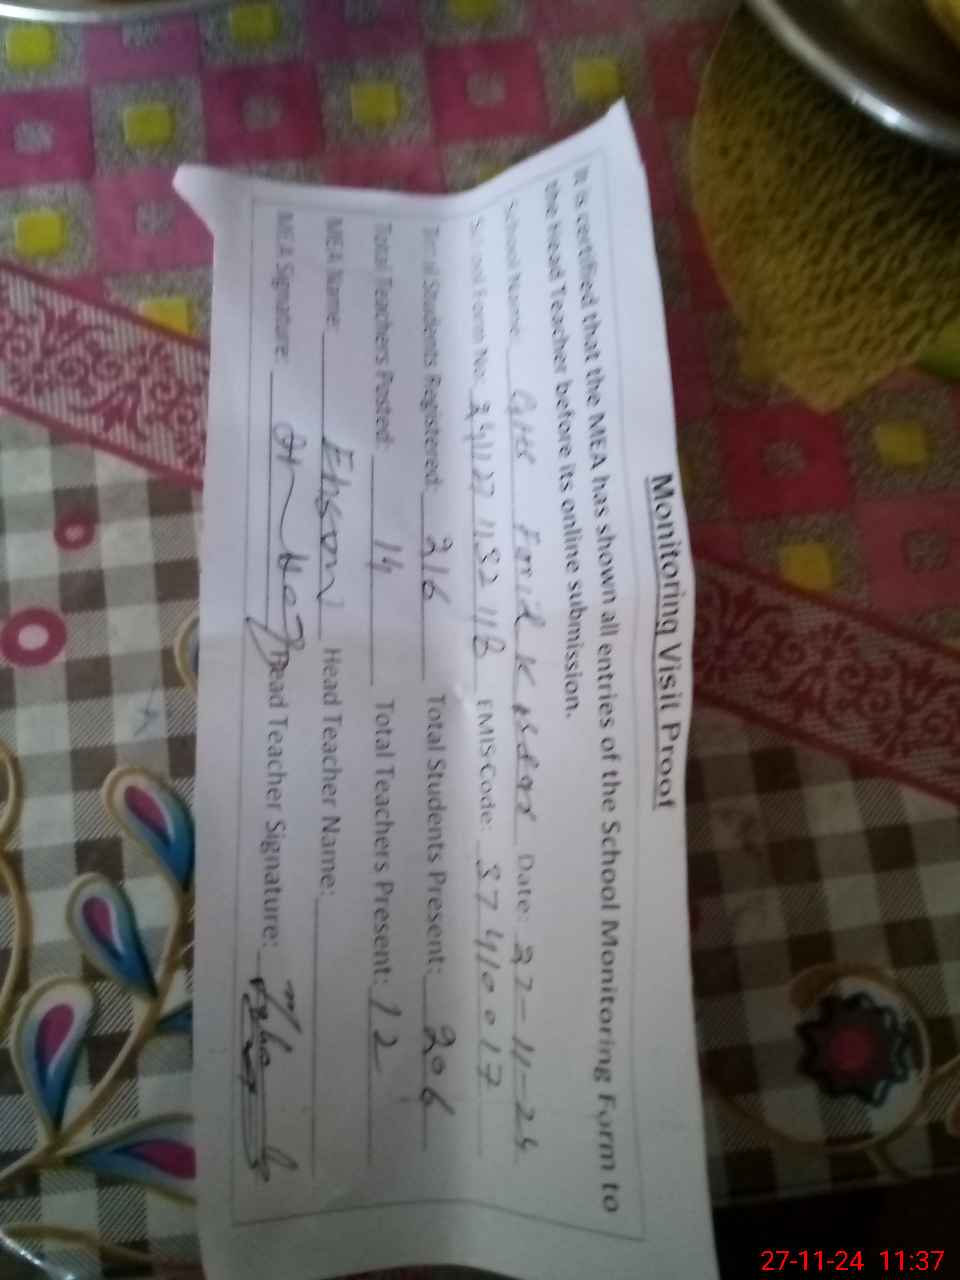 Monitoring Visit Proof
It is certified that the MEA has shown all entries of the School Monitoring Form to
the Head Teacher before its online submission.
School Name: Farid Date: 27-11-24
School Form No: EMIS Code: 37410017
Total Students Registered: 216 Total Students Present: 206
Total Teachers Posted: 14 Total Teachers Present: 12
MEA Name: Ehsan Head Teacher Name:
MEA Signature: Head Teacher Signature:
27-11-24 11:37